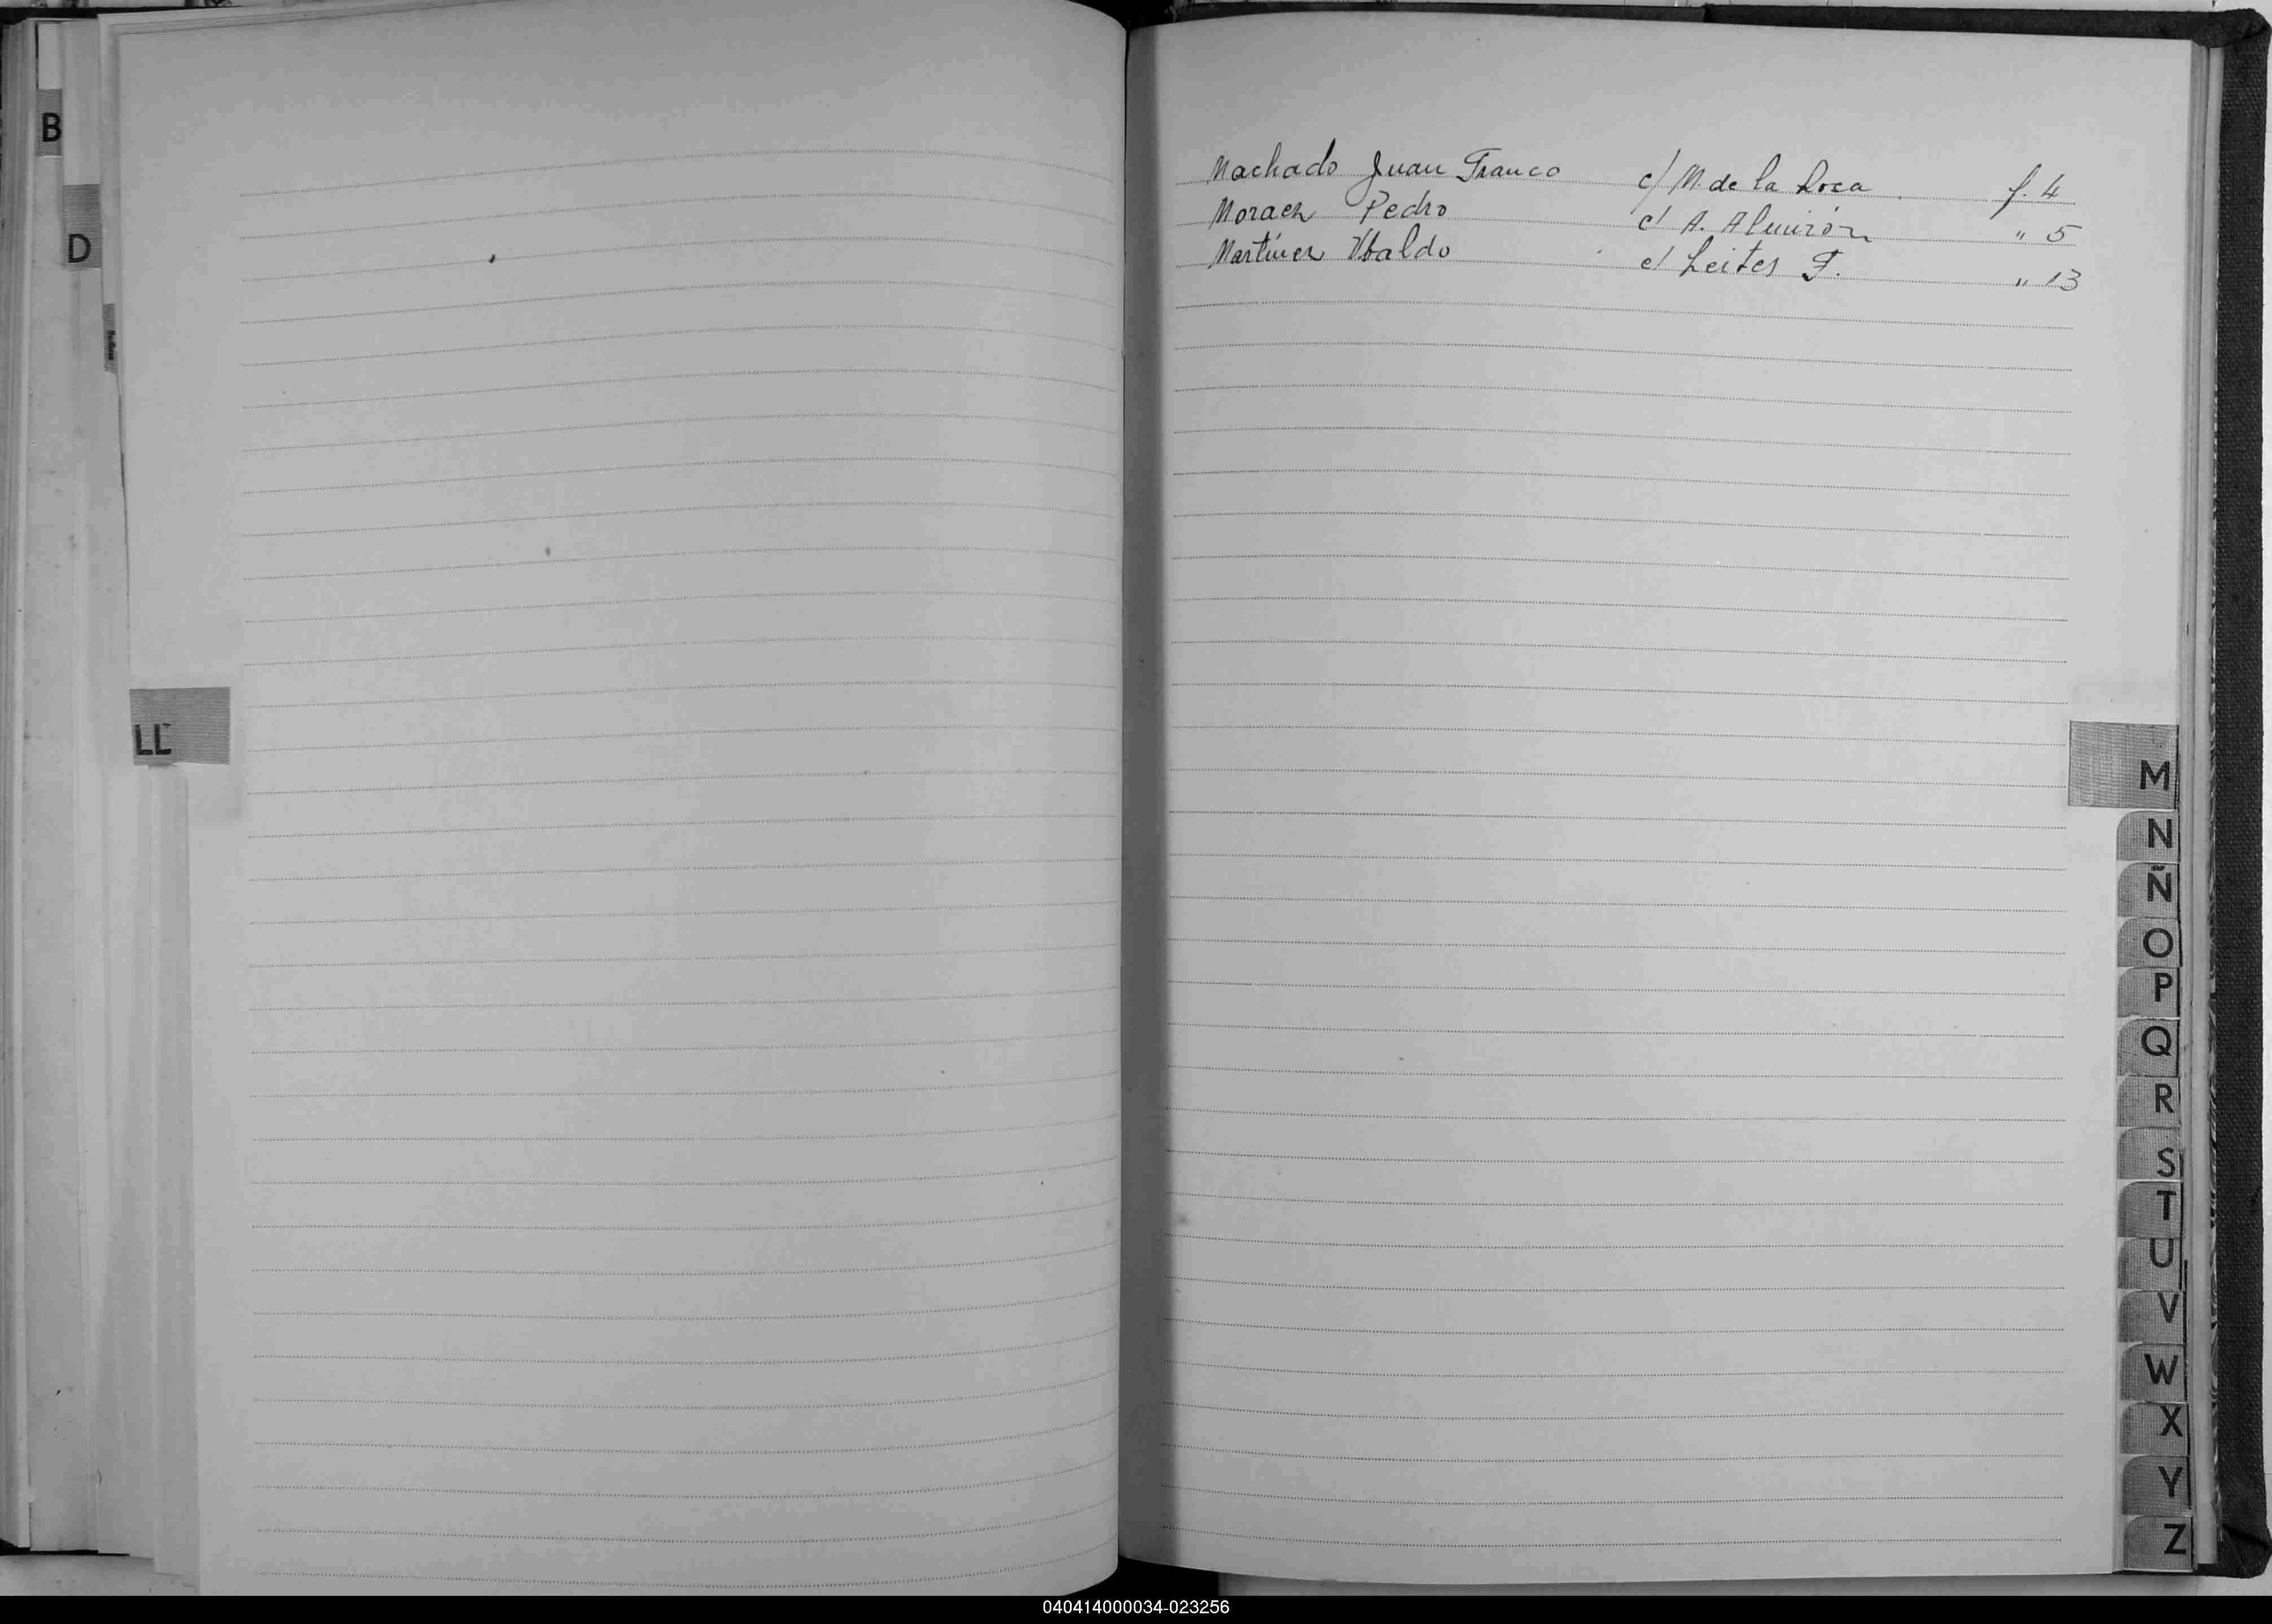 B
D
LL
Machado Juan Franco c/ M. de la Rosa f. 4
Moraez Pedro c/ A. Almirón " 5
Martínez Ubaldo c/ Leites F. " 13
M
N
Ñ
O
P
Q
R
S
T
U
V
W
X
Y
Z
040414000034-023256